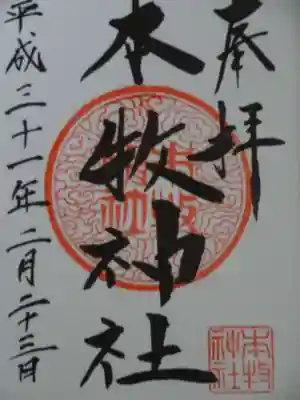 奉拝
本牧神社
平成三十一年二月二十三日
本牧
神社